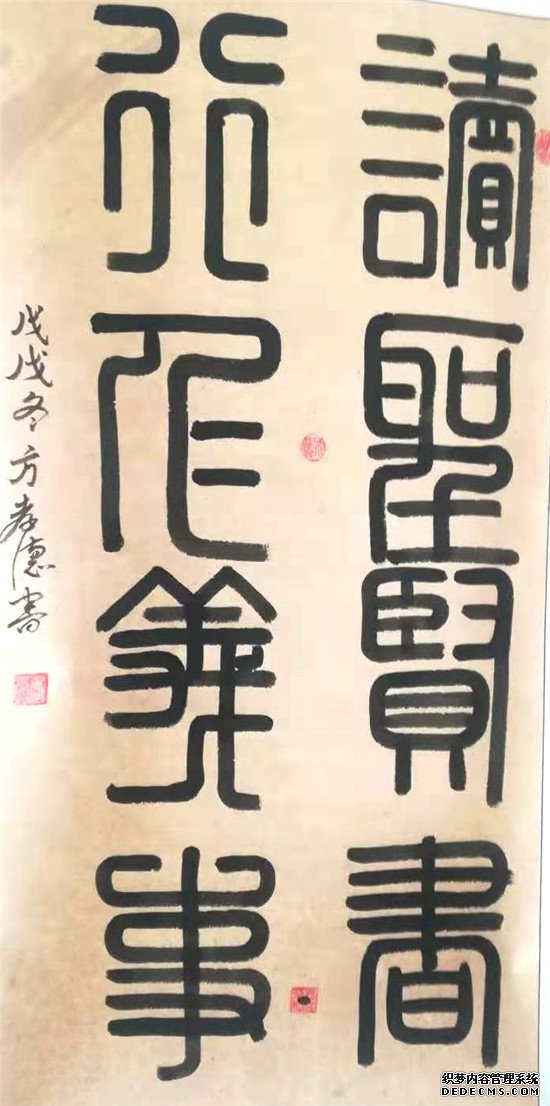 讀聖賢書
行仁義事
戊戌冬方孝德書
织梦内容管理系统
DEDECMS.COM